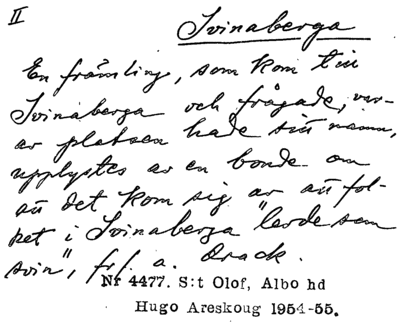 II
Svinaberga
En främling, som kom till
Svinaberga och frågade, var-
av platsen hade sitt namn,
upplystes av en bonde om
att det kom sig av att fol-
ket i Svinaberga "levde som
svin", frf. a. Orack.
Nr 4477. S:t Olof, Albo hd
Hugo Areskoug 1954-55.